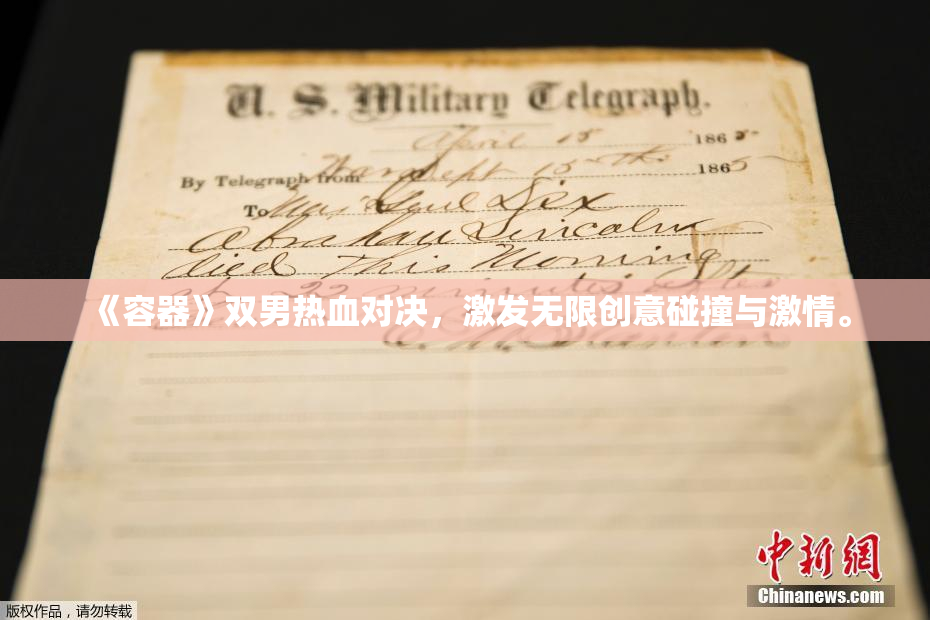 U. S. Military Telegraph.
April 15 1865
By Telegraph from War Dept 15th 1865
To Maj Genl Dix
Abraham Lincoln
died This Morning
at 22 minutes after
《容器》双男热血对决，激发无限创意碰撞与激情。
中新网
Chinanews.com
版权作品，请勿转载